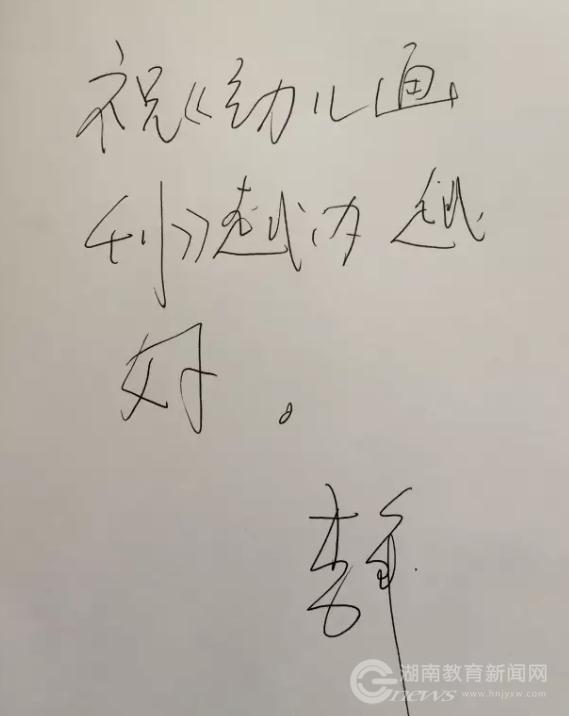 祝《幼儿画
刊》越办越
好。
湖南教育新闻网
news www.hnjyxw.com